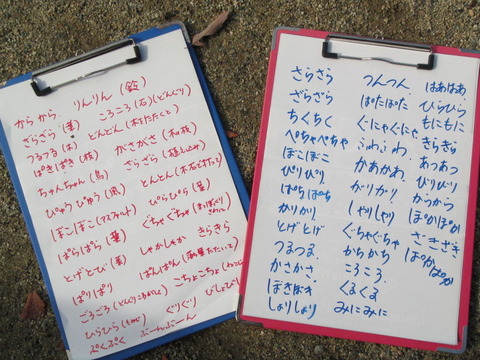 からから
りんりん(鈴)
ざらざら(葉)
ころころ(石)(どんぐり)
つるつる(木)
とんとん(木をたたくと)
ぱきぱき(枝)
がさがさ(和紙)
ちゅんちゅん(鳥)
ざらざら
ぴゅうぴゅう(風)
とんとん
ぼこぼこ(アスファルト)
ぴらぴら
ぱらぱら(葉)
ぐちゃぐちゃ
とげとげ(葉)
しゃかしゃか
きらきら
ぱりぱり
ぱんぱん
ごろごろ(どんぐりころがして)
ごちょごちょ
ひらひら
ぐりぐり
びしょびしょ
ぷくぷく
ぶーんぶーん
さらさら
ざらざら
ちくちく
ぺちゃぺちゃ
ぼこぼこ
ぴりぴり
ぱちぱち
かりかり
とげとげ
つるつる
かさかさ
ぽきぽき
しょりしょり
つんつん
ぱたぱた
ぐにゃぐにゃ
ふわふわ
かあかあ
がりがり
しゃりしゃり
ぐちゃぐちゃ
かちかち
ころころ
くるくる
みにみに
はあはあ
ひらひら
もにもに
きらきら
あつあつ
びりびり
からから
ぽかぽか
ざきざき
ぱかぱか